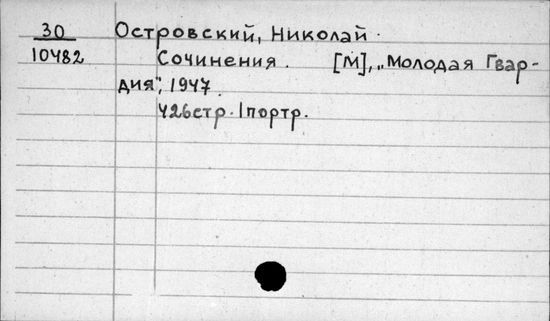 30 Островский, Николай.
10482 Сочинения. [М], „Молодая Гвар-
дия", 1947.
426стр. 1портр.